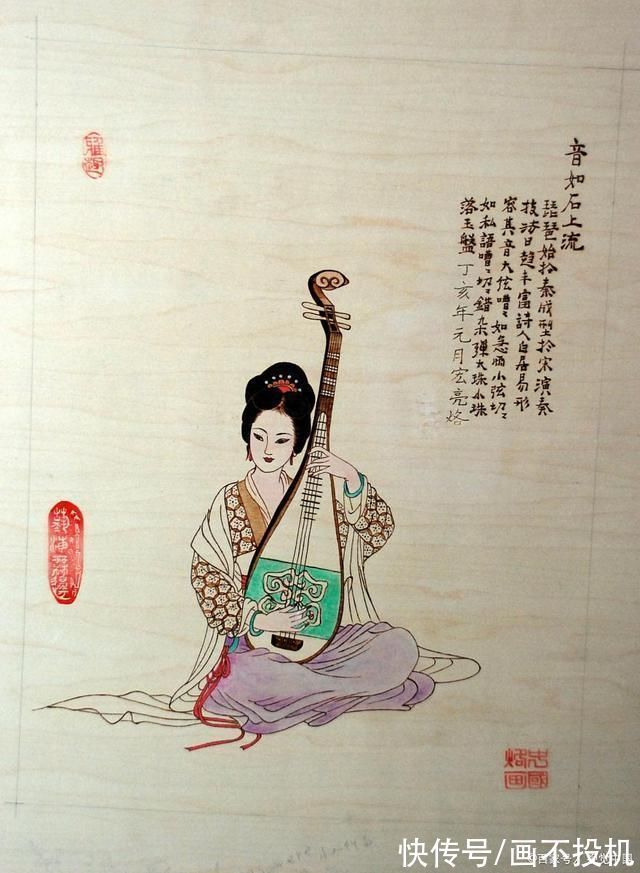 音如石上流
琵琶始於秦成型於宋演奏
技法日趋丰富詩人白居易形
容其音大弦嘈〻如急雨小弦切〻
如私語嘈〻切〻錯杂弹大珠小珠
落玉盤 丁亥年元月宏亮烙
中國
烙画
快传号/画不投机